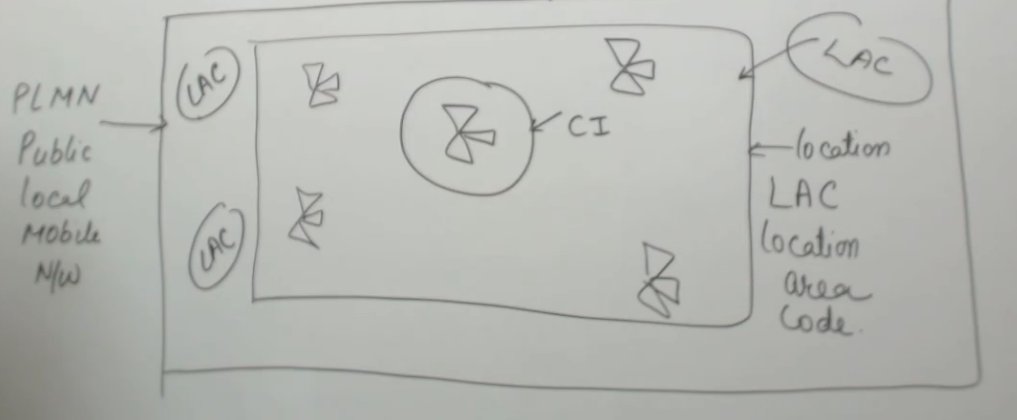 PLMN
Public
local
Mobile
N/W
LAC
LAC
CI
LAC
location
LAC
location
area
Code.